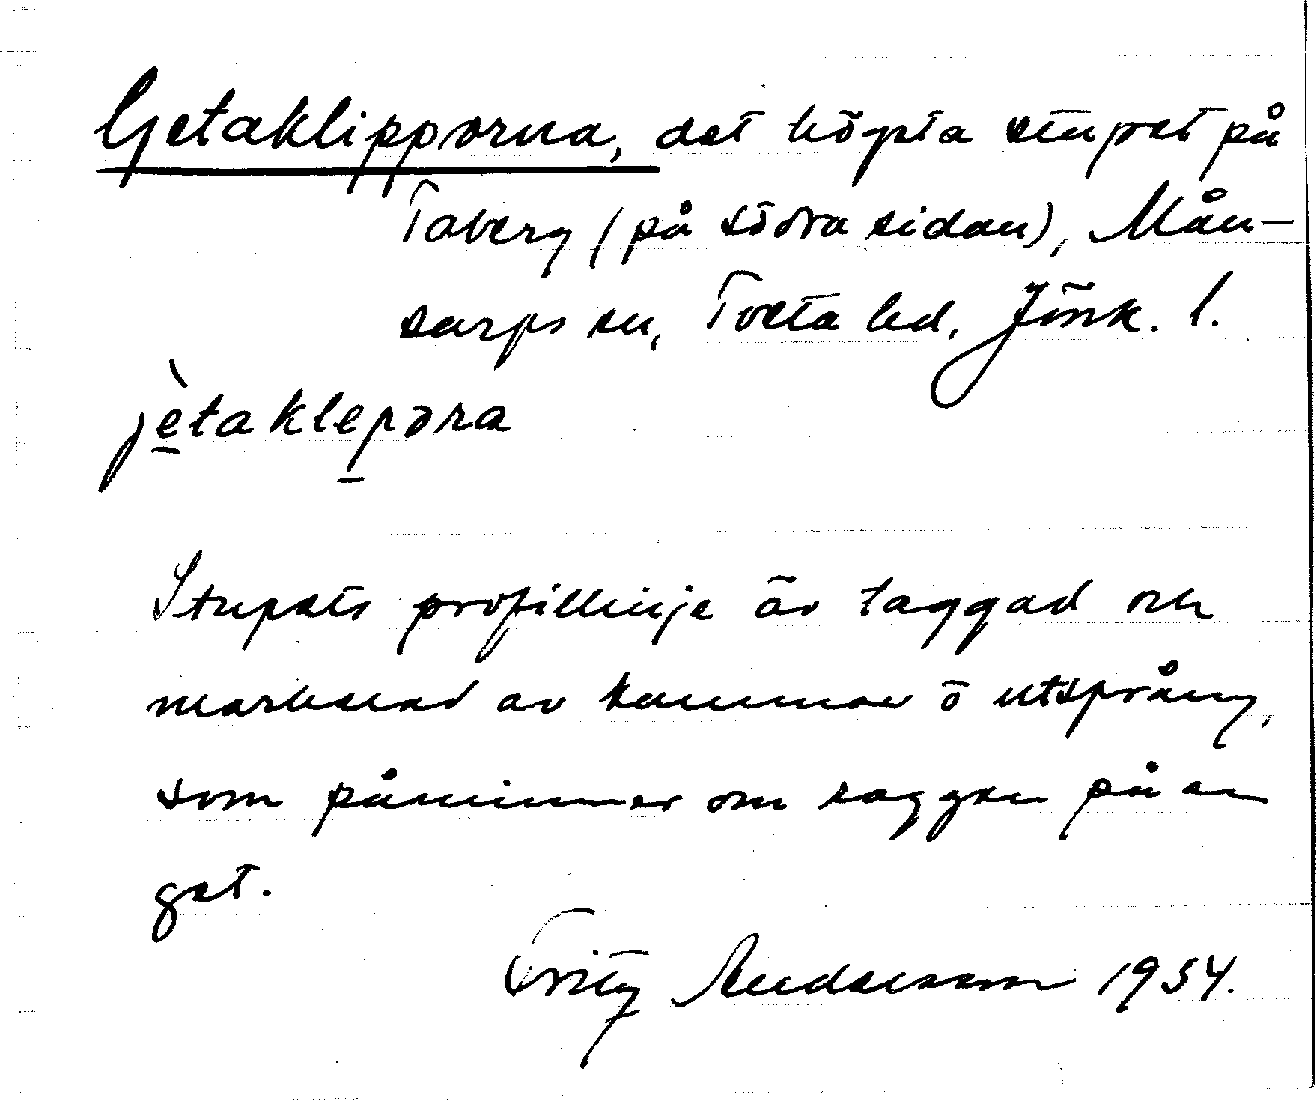 Getaklipporna, det högsta stupet på
Taberg (på södra sidan), Mån-
sarps sn, Tveta hd, Jönk. l.
jètaklepơra
Stupets profillinje är taggad och
markerad av kammar o utsprång,
som påminner om raggen på en
get.
Fritz Andersson 1954.